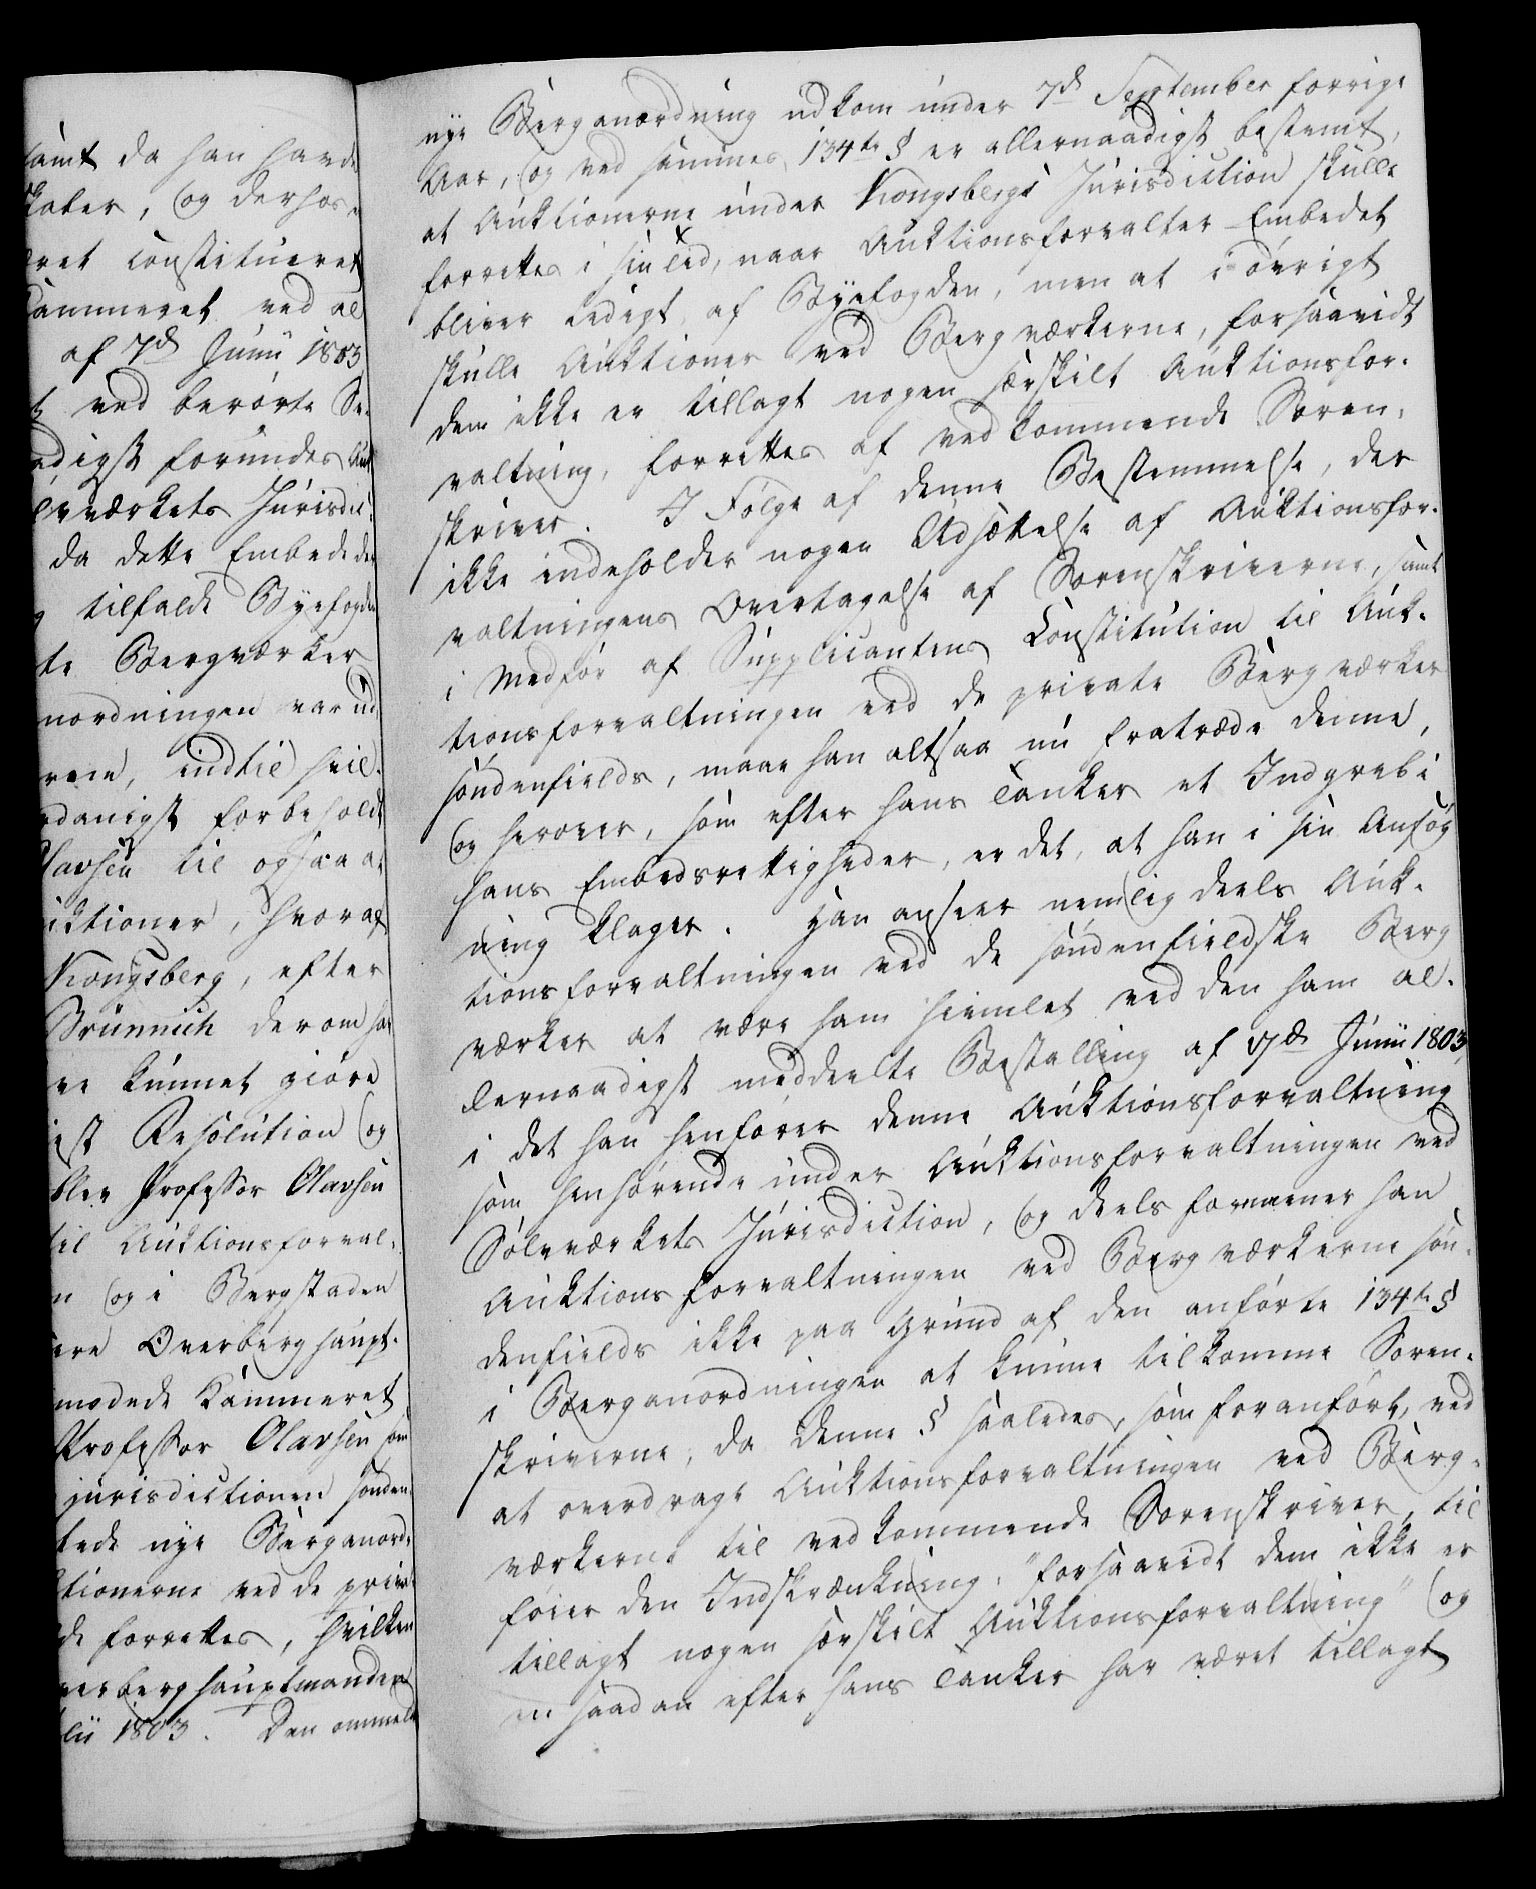 samt da han havde
skaber, og derhos
æret constitueret
Kammeret ved al
af 7d Junii 1803
ved berörte Be-
adigst forundes Auk
lvværkets Jurisdic
da dette Embede den
tilfaldt Byefogden
te Bergværker
nordningen var ud
indtil hvil-
rdanigst forbeholdt
lavsen til ogsaa at
uktioner, hvoraf
Kongsberg, efter
Brünnich derom har
kunnet giöre
est Resolution og
blev Professor Olavsen
til Auktionsforval-
n og i Bergstaden
ere Overberghaupt-
modede Kammeret
Professor Olavsen som
jurisdictionen sönden-
tede nye Berganord-
tionerne ved de priva-
de forrettes, hvilken
verberghauptmanden
lii 1803. Den ommeldte
nye Berganordning udkom under 7d September forrige
Aar, og ved sammes 134de § er allernaadigst bestemt,
at Auktionerne under Kongsbergs Jurisdiction skulle
forrettes i sin Tid, naar Auktionsforvalter-Embedet
bliver ledigt, af Byefogden, men at i övrigt
skulle Auktioner ved Bergværkerne, forsaavidt
dem ikke er tillagt nogen særskilt Auktionsfor-
valtning, forrettes af vedkommende Soren-
skriver. I Fölge af denne Bestemmelse, der
ikke indeholder nogen Udsættelse af Auktionsfor-
valtningens Overtagelse af Sorenskriverne, samt
i Medför af Supplicantens Constitution til Auk-
tionsforvaltningen ved de private Bergværker
söndenfields, maae han altsaa nu fratræde denne,
og herover, som efter hans Tanker et Indgreb i
hans Embedsrettigheder, er det, at han i sin Ansög
ning klager. Han anseer nemlig deels Auk-
tionsforvaltningen ved de söndenfieldske Berg
værker at være ham hiemlet ved den ham al-
lernaadigst meddeelte Bestalling af 17d Junii 1803,
i det han henförer denne Auktionsforvaltning
som henhörende under Auktionsforvaltningen ved
Sölvværkets Jurisdiction, og deels formener han
Auktionsforvaltningen ved Bergværkerne sön-
denfields ikke paa Grund af den anförte 134de §
i Berganordningen at kunne tilkomme Soren-
skriverne, da denne § saaledes, som foranfört, ved
at overdrage Auktionsforvaltningen ved Berg-
værkerne til vedkommende Sorenskriver, til
föier den Indskrænkning: "forsaavidt dem ikke er
tillagt nogen særskilt Auktionsforvaltning" og
en saadan efter hans Tanker har været tillagt